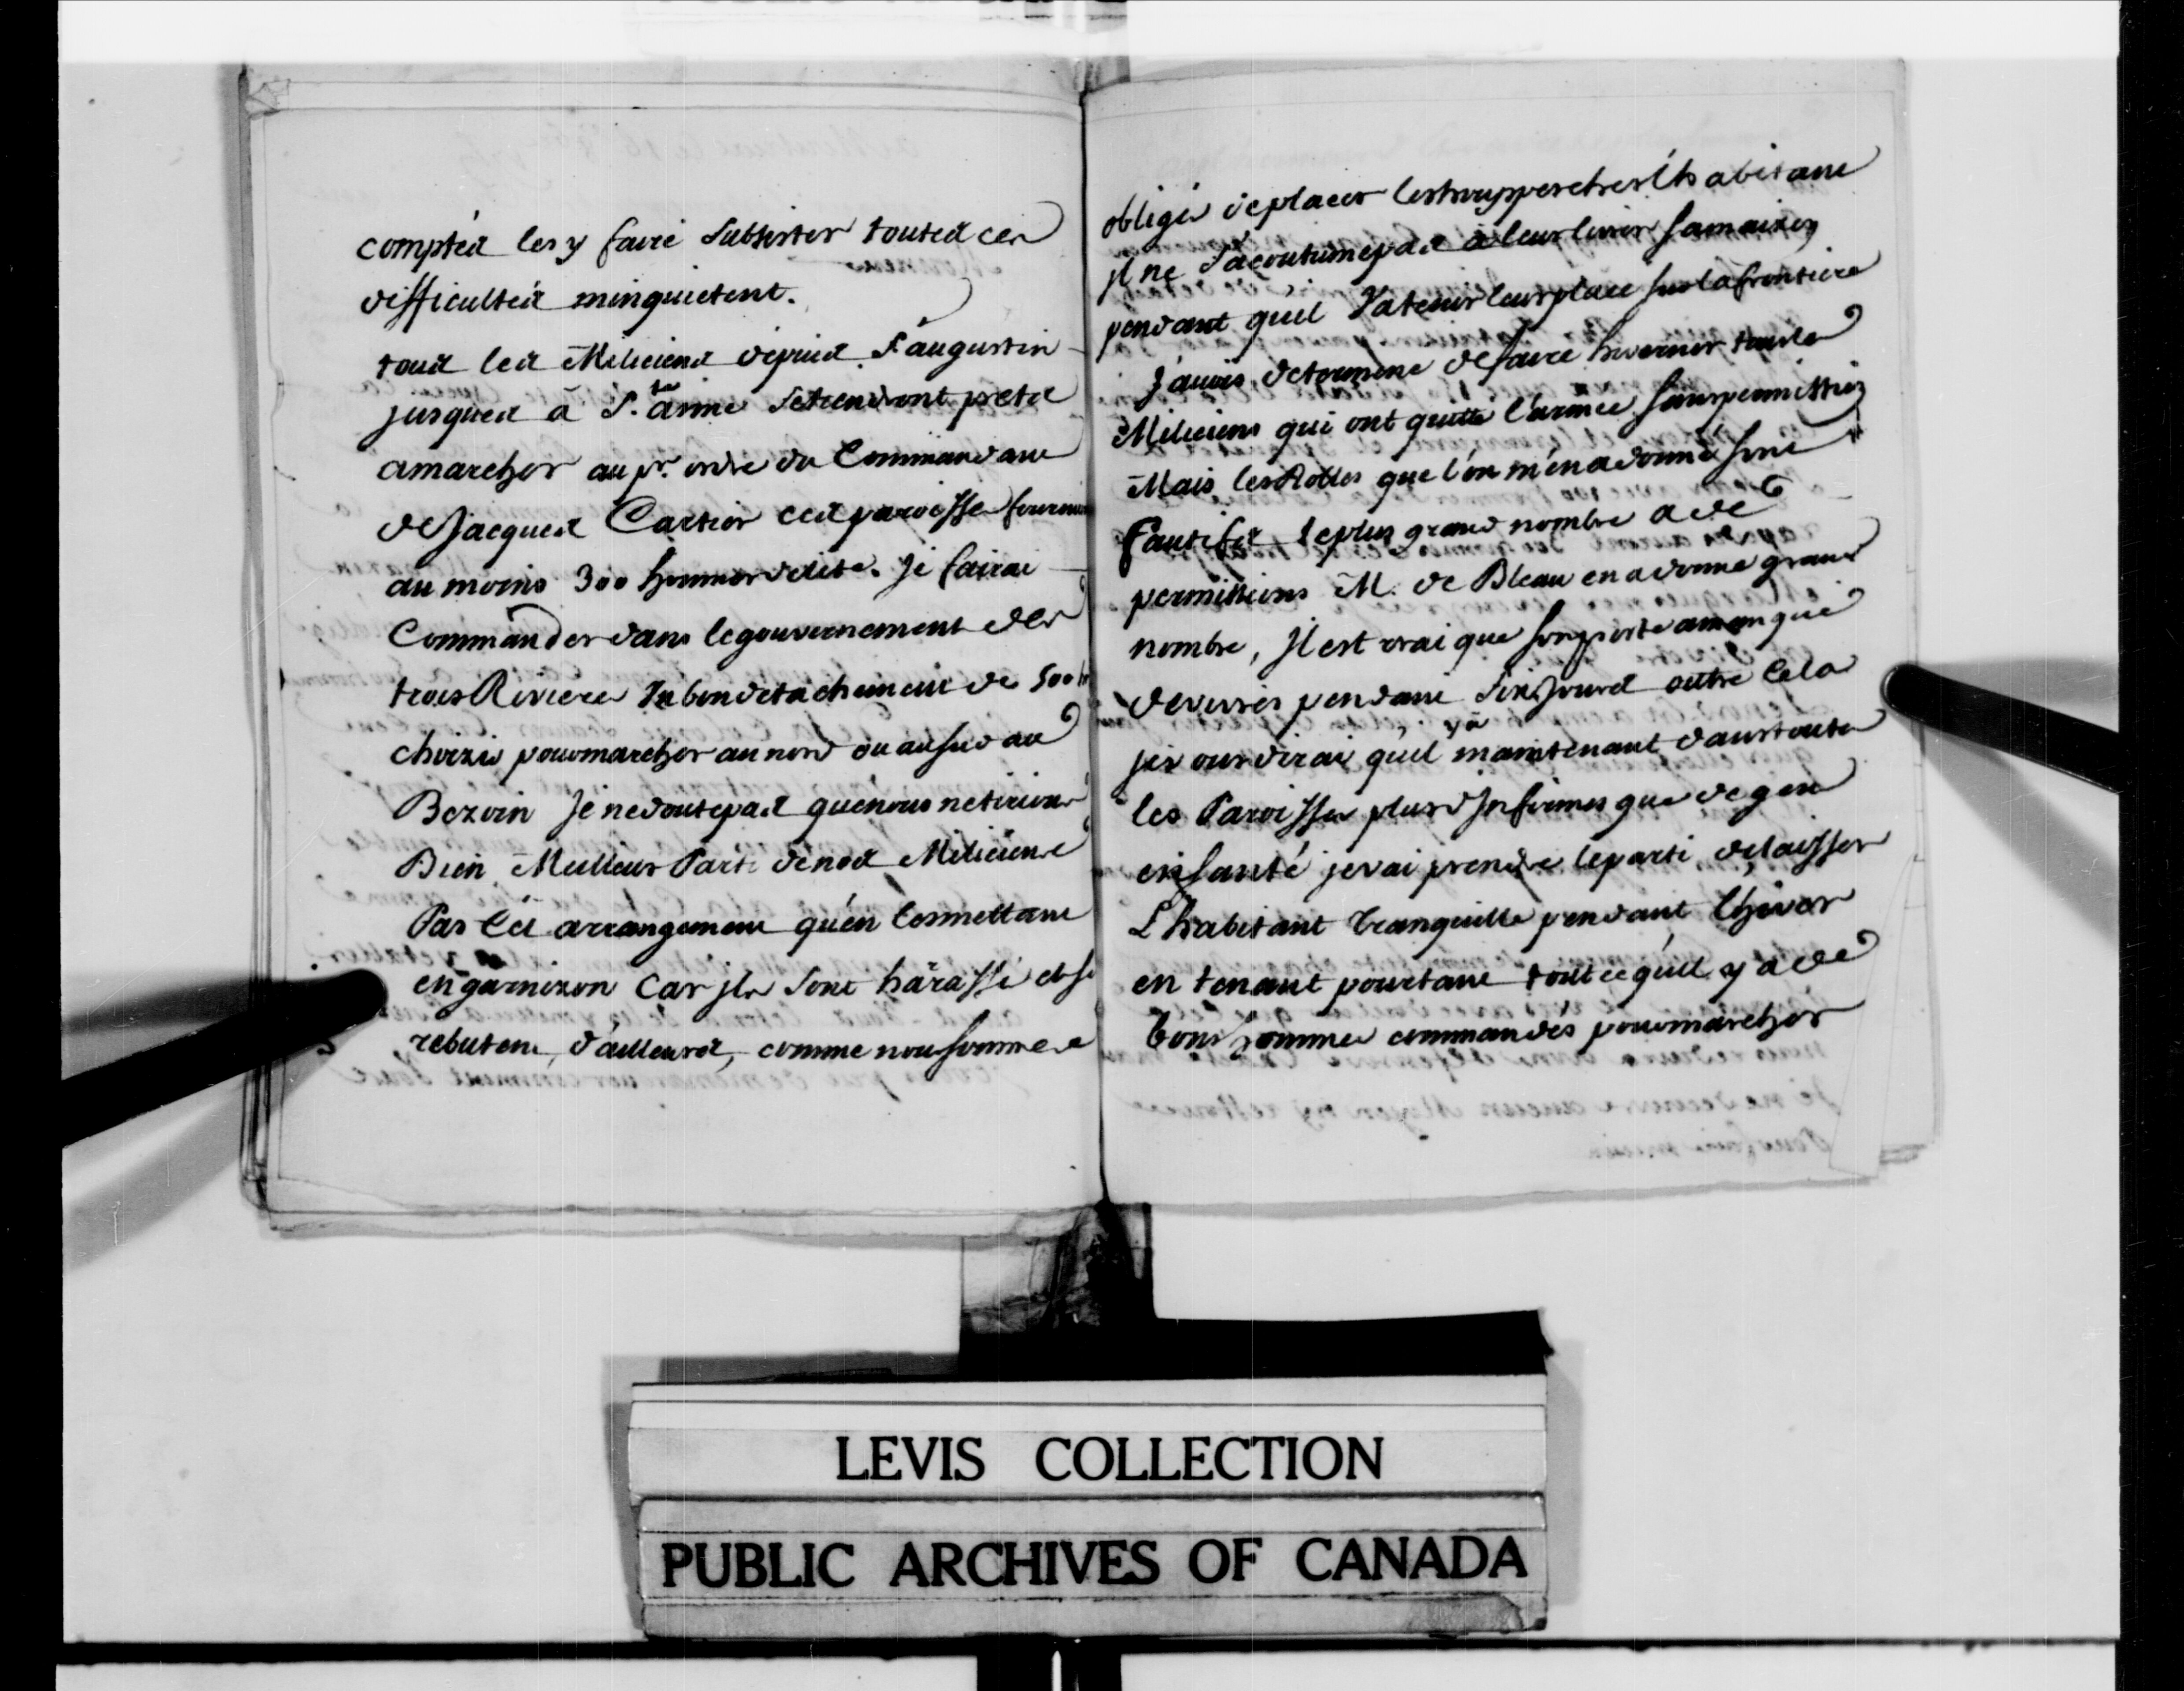 comptes les y faire subsister toutes ces
difficultés minquietent.
tous les Miliciens depuis St augustin
jusques à S.te anne se tiendront prets
a marcher au pr. ordre du Commandant
de Jacques Cartier ces paroisses fourni
au moins 300 hommes delite. Je fairai
Commander dans le gouvernement des
trois Rivieres un bon detachement de 500 h
choizis pour marcher au nord ou au sud au
Bezoin Je ne doute pas que nous ne tirions
Bien Meilleur Parti de nos Miliciens
Par Cet arrangement qu'en les mettant
en garnizon Car jls sont harassé et se
rebutent, d'ailleurs, comme nous sommes
obligés de placer les trouppes chez l'habitant
jl ne s'acoutume pas à leur livrer sa maizon
pendant qu'il Va tenir leur place sur la frontiere
J'avois determiné de faire hiverner tous les
Miliciens qui ont quitté l'armée sans permission
Mais les Rolles que l'on m'en a donné sont
fautifs le plus grand nombre a des
permissions M. de Bleau en a donné grand
nombre, Jl est vrai que son poste a manqué
de vivres pendant six jours outre Cela
je vous dirai qu'il y a maintenant dans toutes
les Paroisses plus d'Jnfirmes que de gens
en santé je vai prendre le parti de laisser
L'habitant tranquille pendant lhiver
en tenant pourtant tout ce qu'il y a de
bons hommes commandés pour marcher
LEVIS COLLECTION
PUBLIC ARCHIVES OF CANADA